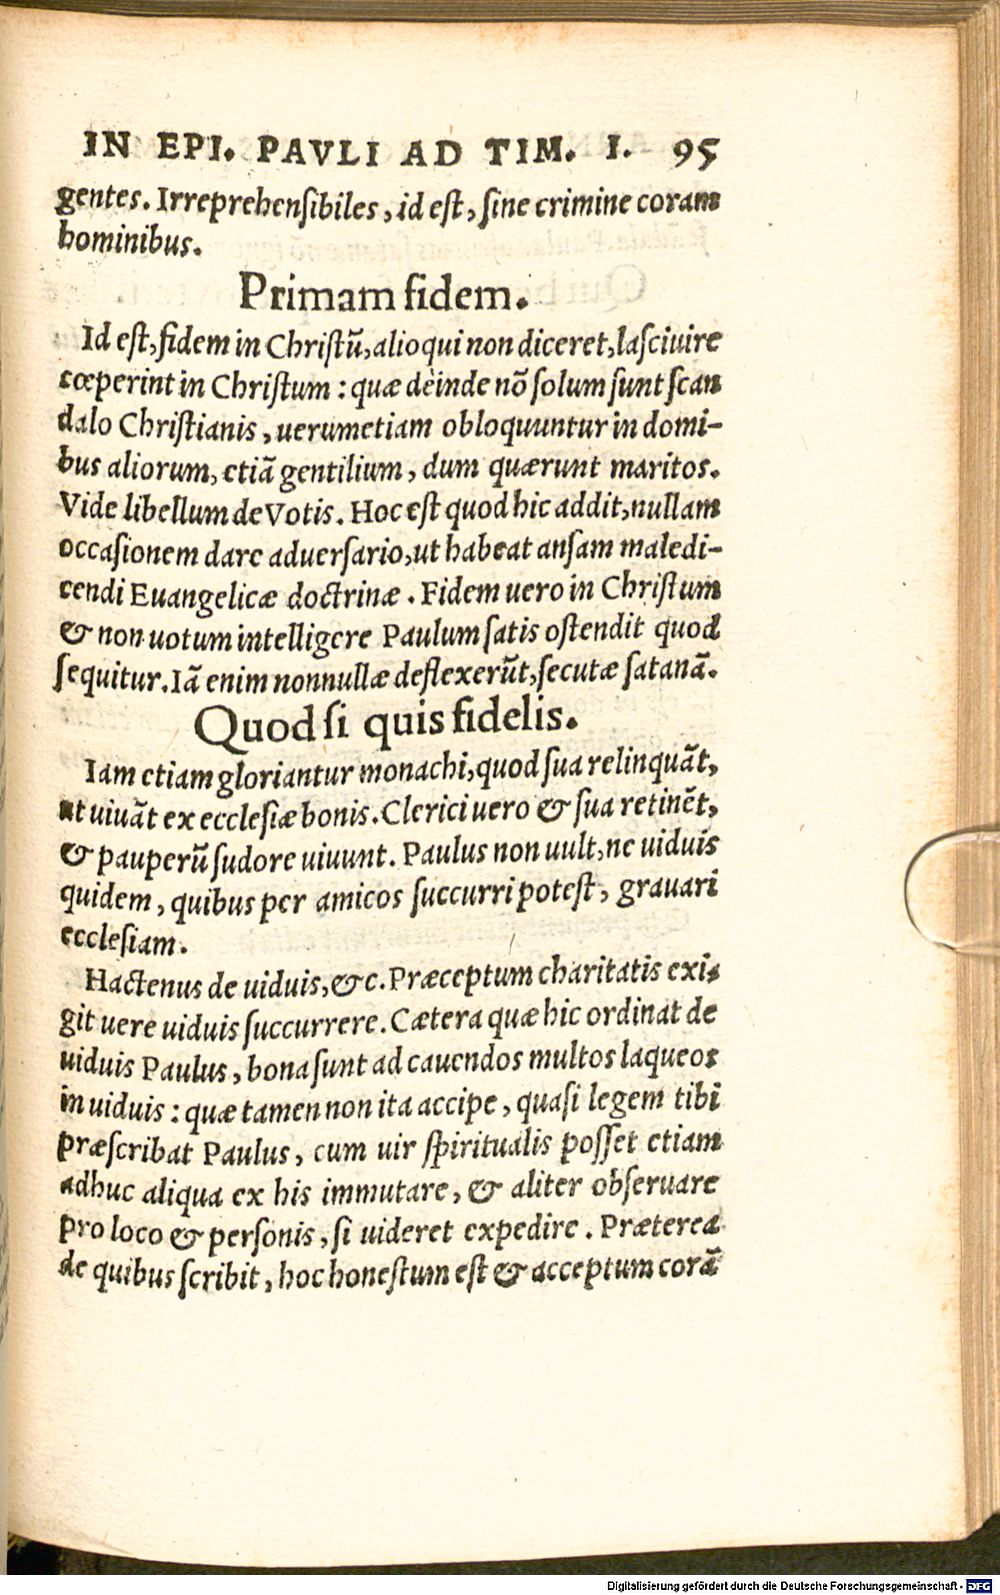 IN EPI. PAVLI AD TIM. I. 95
gentes. Irreprehenſibiles, id eſt, ſine crimine coram
hominibus.
Primam fidem.
Id eſt, fidem in Chriſtū, alioqui non diceret, laſciuire
cœperint in Chriſtum: quæ deinde nō ſolum ſunt ſcan
dalo Chriſtianis, uerumetiam obloquuntur in domi-
bus aliorum, etiā gentilium, dum quærunt maritos.
Vide libellum de Votis. Hoc eſt quod hic addit, nullam
occaſionem dare aduerſario, ut habeat anſam maledi-
cendi Euangelicæ doctrinæ. Fidem uero in Chriſtum
& non uotum intelligere Paulum ſatis oſtendit quod
ſequitur. Iā enim nonnullæ deflexerūt, ſecutæ ſatanā.
Quod ſi quis fidelis.
Iam etiam gloriantur monachi, quod ſua relinquāt,
ut uiuāt ex eccleſiæ bonis. Clerici uero & ſua retinēt,
& pauperū ſudore uiuunt. Paulus non uult, ne uiduis
quidem, quibus per amicos ſuccurri poteſt, grauari
eccleſiam.
Hactenus de uiduis, &c. Præceptum charitatis exi-
git uere uiduis ſuccurrere. Cætera quæ hic ordinat de
uiduis Paulus, bona ſunt ad cauendos multos laqueos
in uiduis: quæ tamen non ita accipe, quaſi legem tibi
præſcribat Paulus, cum uir ſpiritualis poſſet etiam
adhuc aliqua ex his immutare, & aliter obſeruare
pro loco & perſonis, ſi uideret expedire. Præterea
de quibus ſcribit, hoc honeſtum eſt & acceptum corā
Digitalisierung gefördert durch die Deutsche Forschungsgemeinschaft - DFG